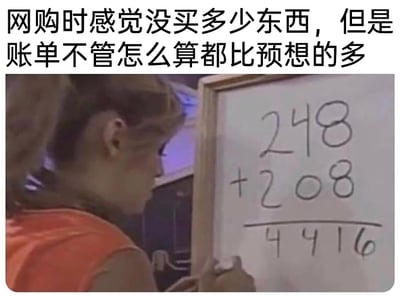 网购时感觉没买多少东西，但是
账单不管怎么算都比预想的多
248
+208
4416